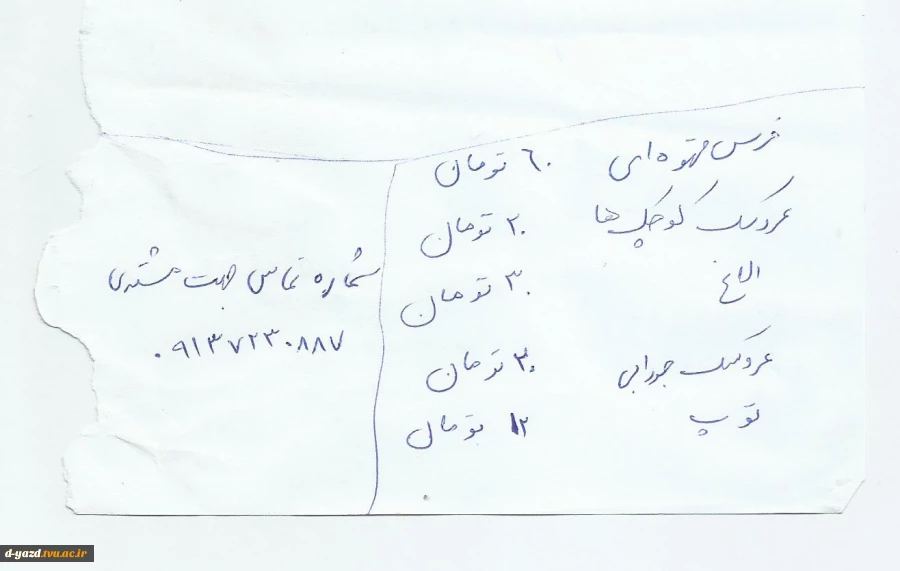 خرس قهوه ای ۶۰ تومان
عروسک کوچک ها ۲۰ تومان
الاغ ۳۰ تومان
عروسک جورابی ۲۰ تومان
توپ ۱۲ تومان
شماره تماس جهت مشتری
۰۹۱۳۷۲۳۰۸۸۷
d-yazd.tvu.ac.ir